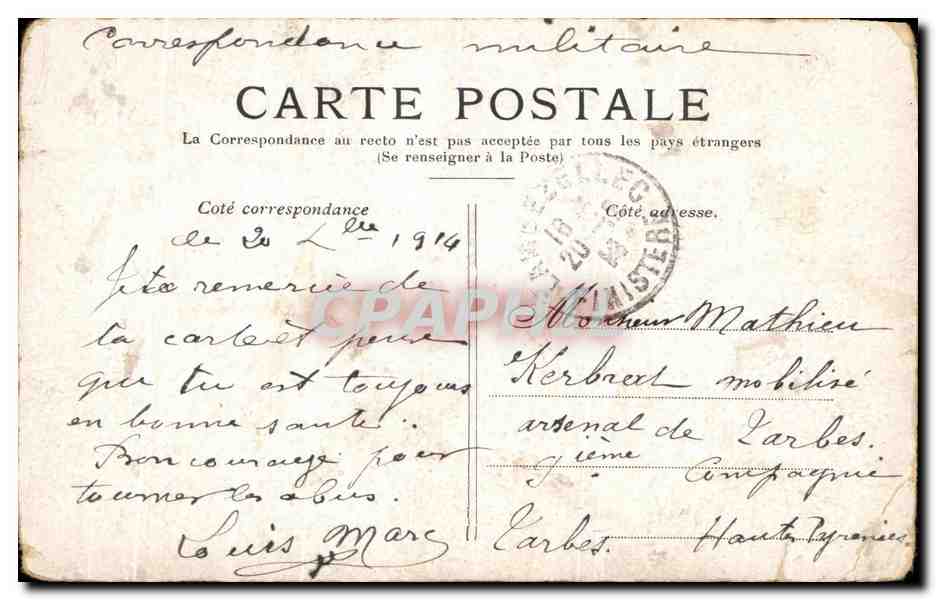 Correspondance militaire
CARTE POSTALE
La Correspondance au recto n'est pas acceptée par tous les pays étrangers
(Se renseigner à la Poste)
Coté correspondance
le 20 1914
Je te remercie de
ta carte et pense
que tu est toujours
en bonne santé.
Bon courage pour
tourner les obus.
Louis Marc
Côté adresse.
LAMBEZELLEC
18
20
FINISTERE
Monsieur Mathieu
Kerbrat mobilisé
arsenal de Tarbes.
9ième Compagnie
Tarbes. Hautes Pyrenées
CPAPHIL